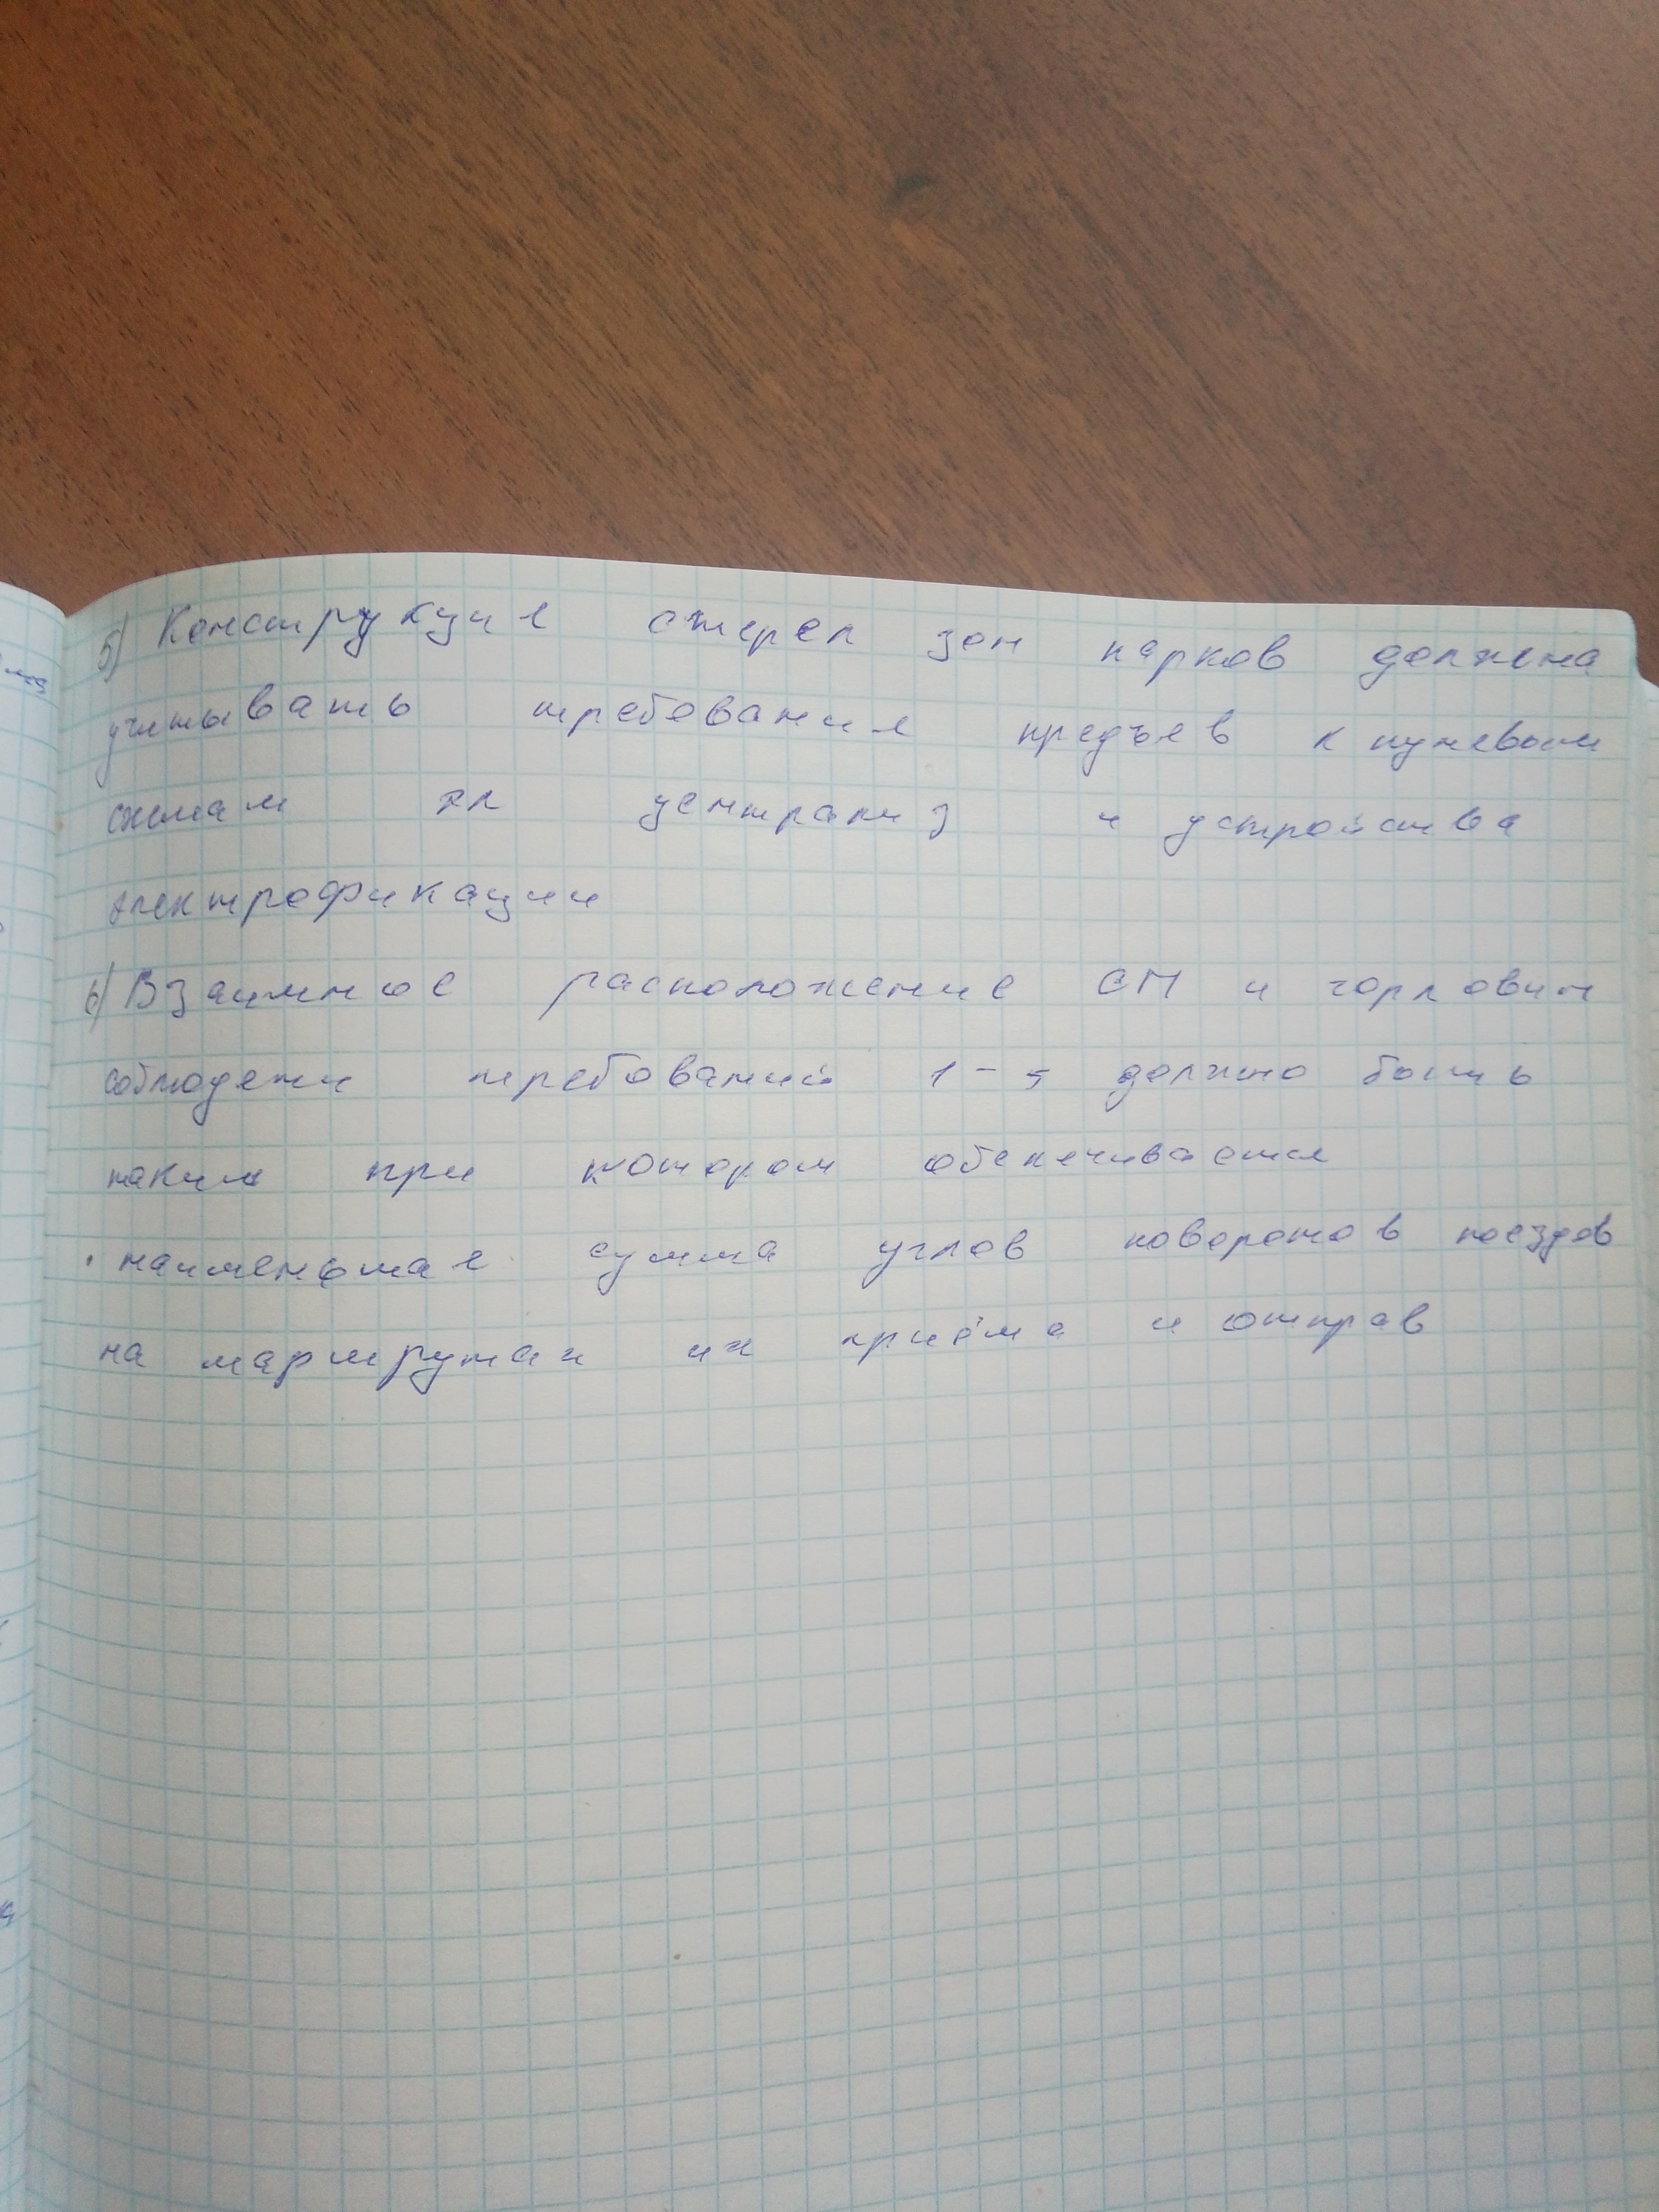 5) Конструкция стрел зон парков должена
учитывать требования предъев к путевым
схемам эл централиз и устройства
электрофикации
6) Взаимное расположение СП и горловин
соблюдени требований 1-5 должно быть
таким при котором обепечивается
наименьшая сумма углов поворотов поездов
на маршрутах их приёма и отправ